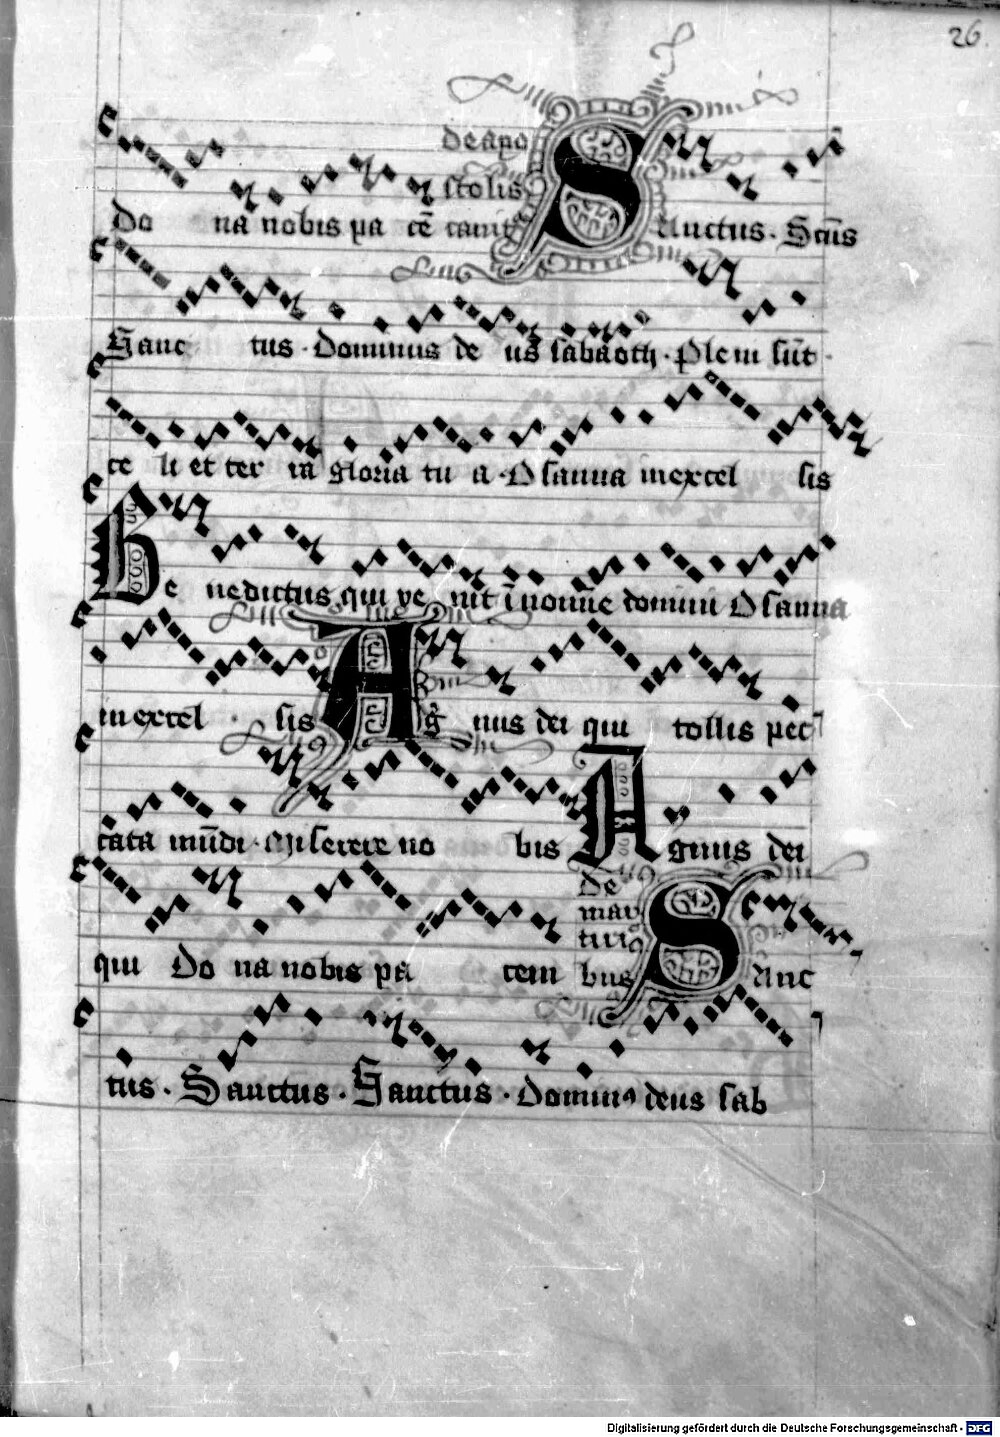 26
de apo
stolis
Do na nobis pa cē canit Sanctus. Scūs
Sanc tus. Dominus de us sabaoth. Pleni sūt.
ce li et ter ra gloria tu a. Osanna in excel sis
Be nedictus qui ve nit ī noīne domini Osanna
in excel sis Ag nus dei qui tollis pec
cata mūdi. Miserere no bis Agnus dei
de
mar
tiri
qui Do na nobis pa cem bus Sanc
tus. Sanctus. Sanctus. Dominꝰ deus sab
Digitalisierung gefördert durch die Deutsche Forschungsgemeinschaft - DFG